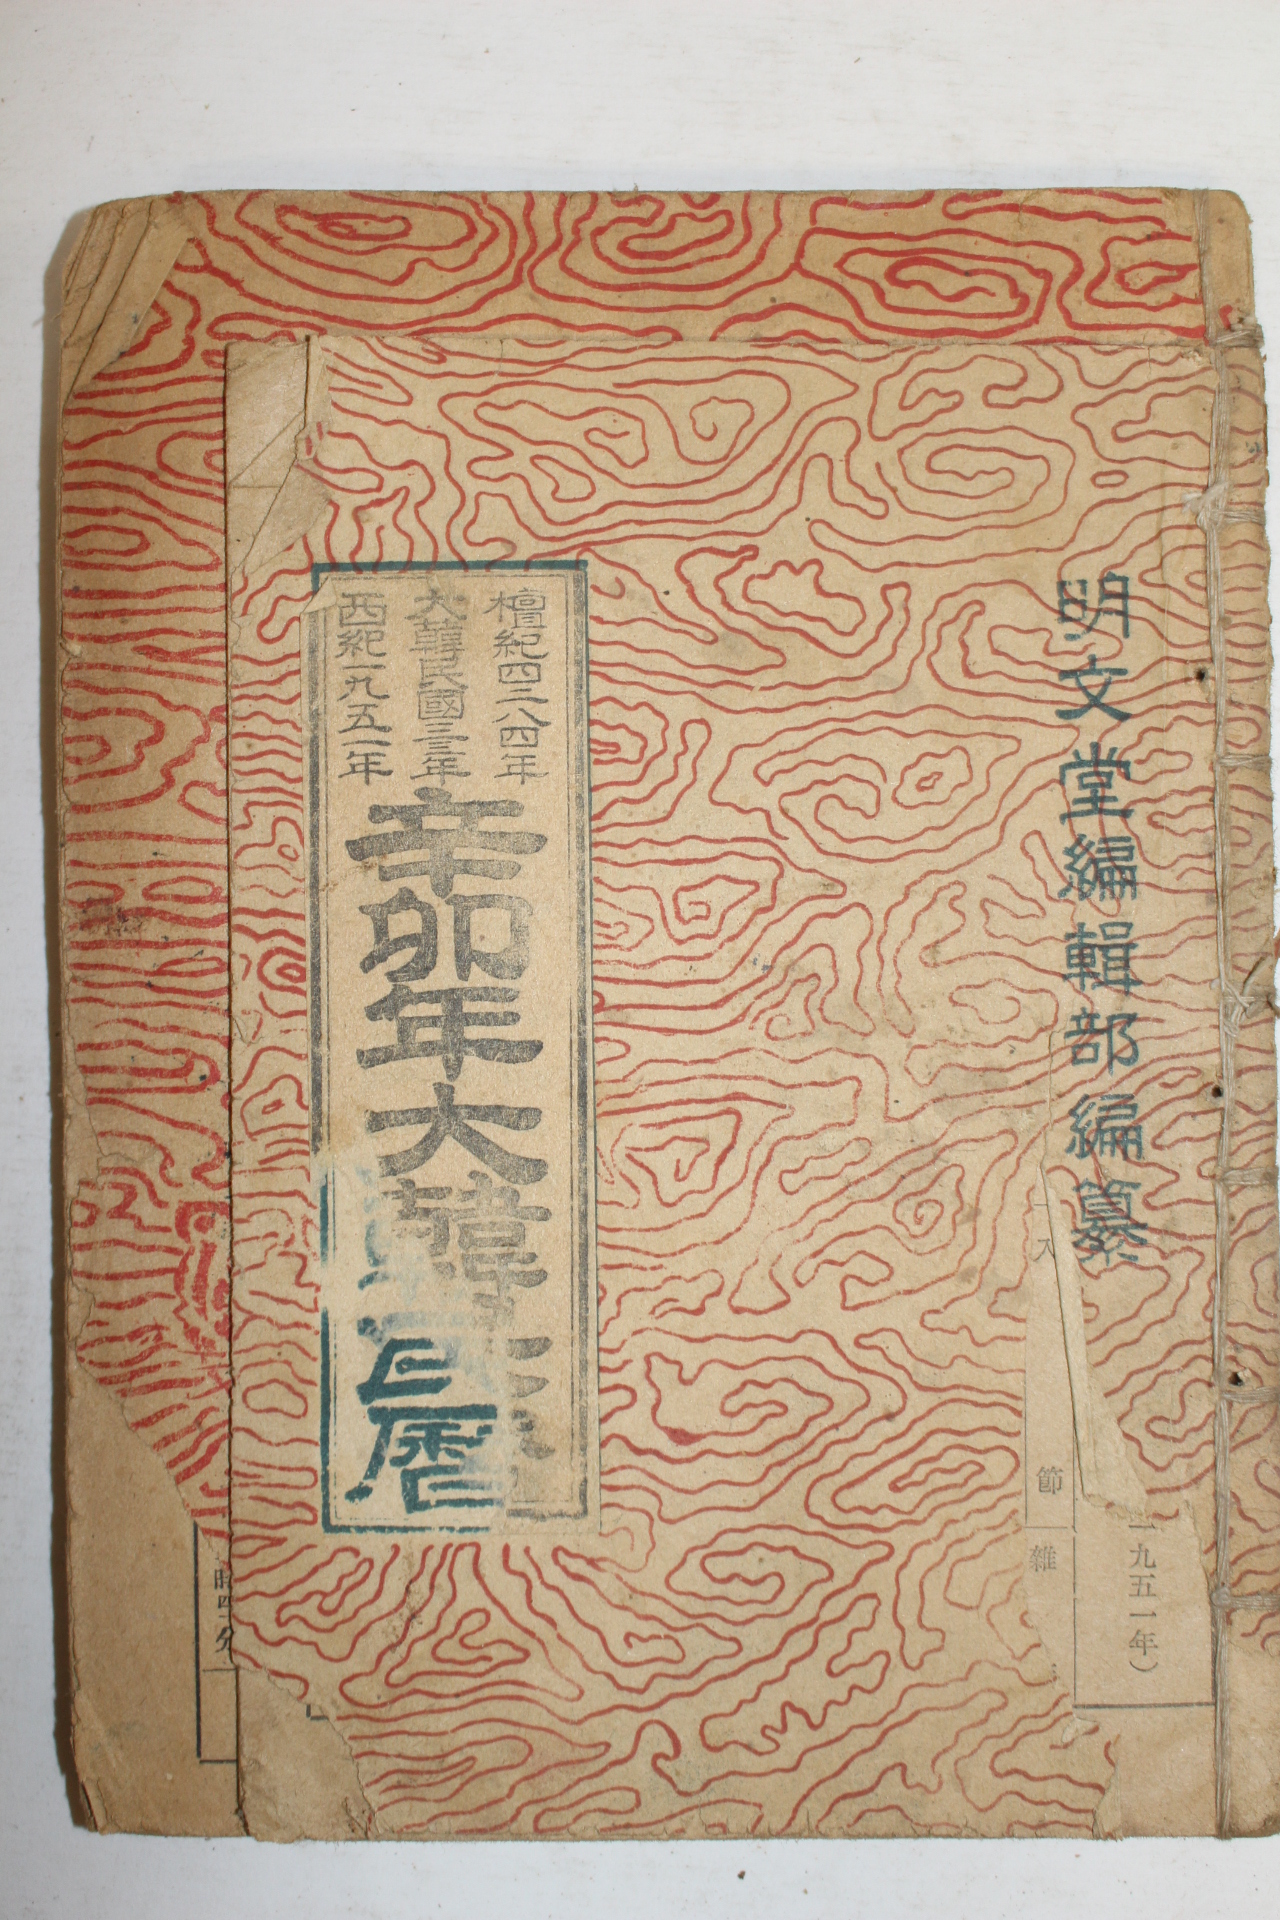 明文堂編輯部編纂
檀紀四二八四年
大韓民國三三年
西紀一九五一年
辛卯年大韓民曆
節
雜
一九五一年）
時四分